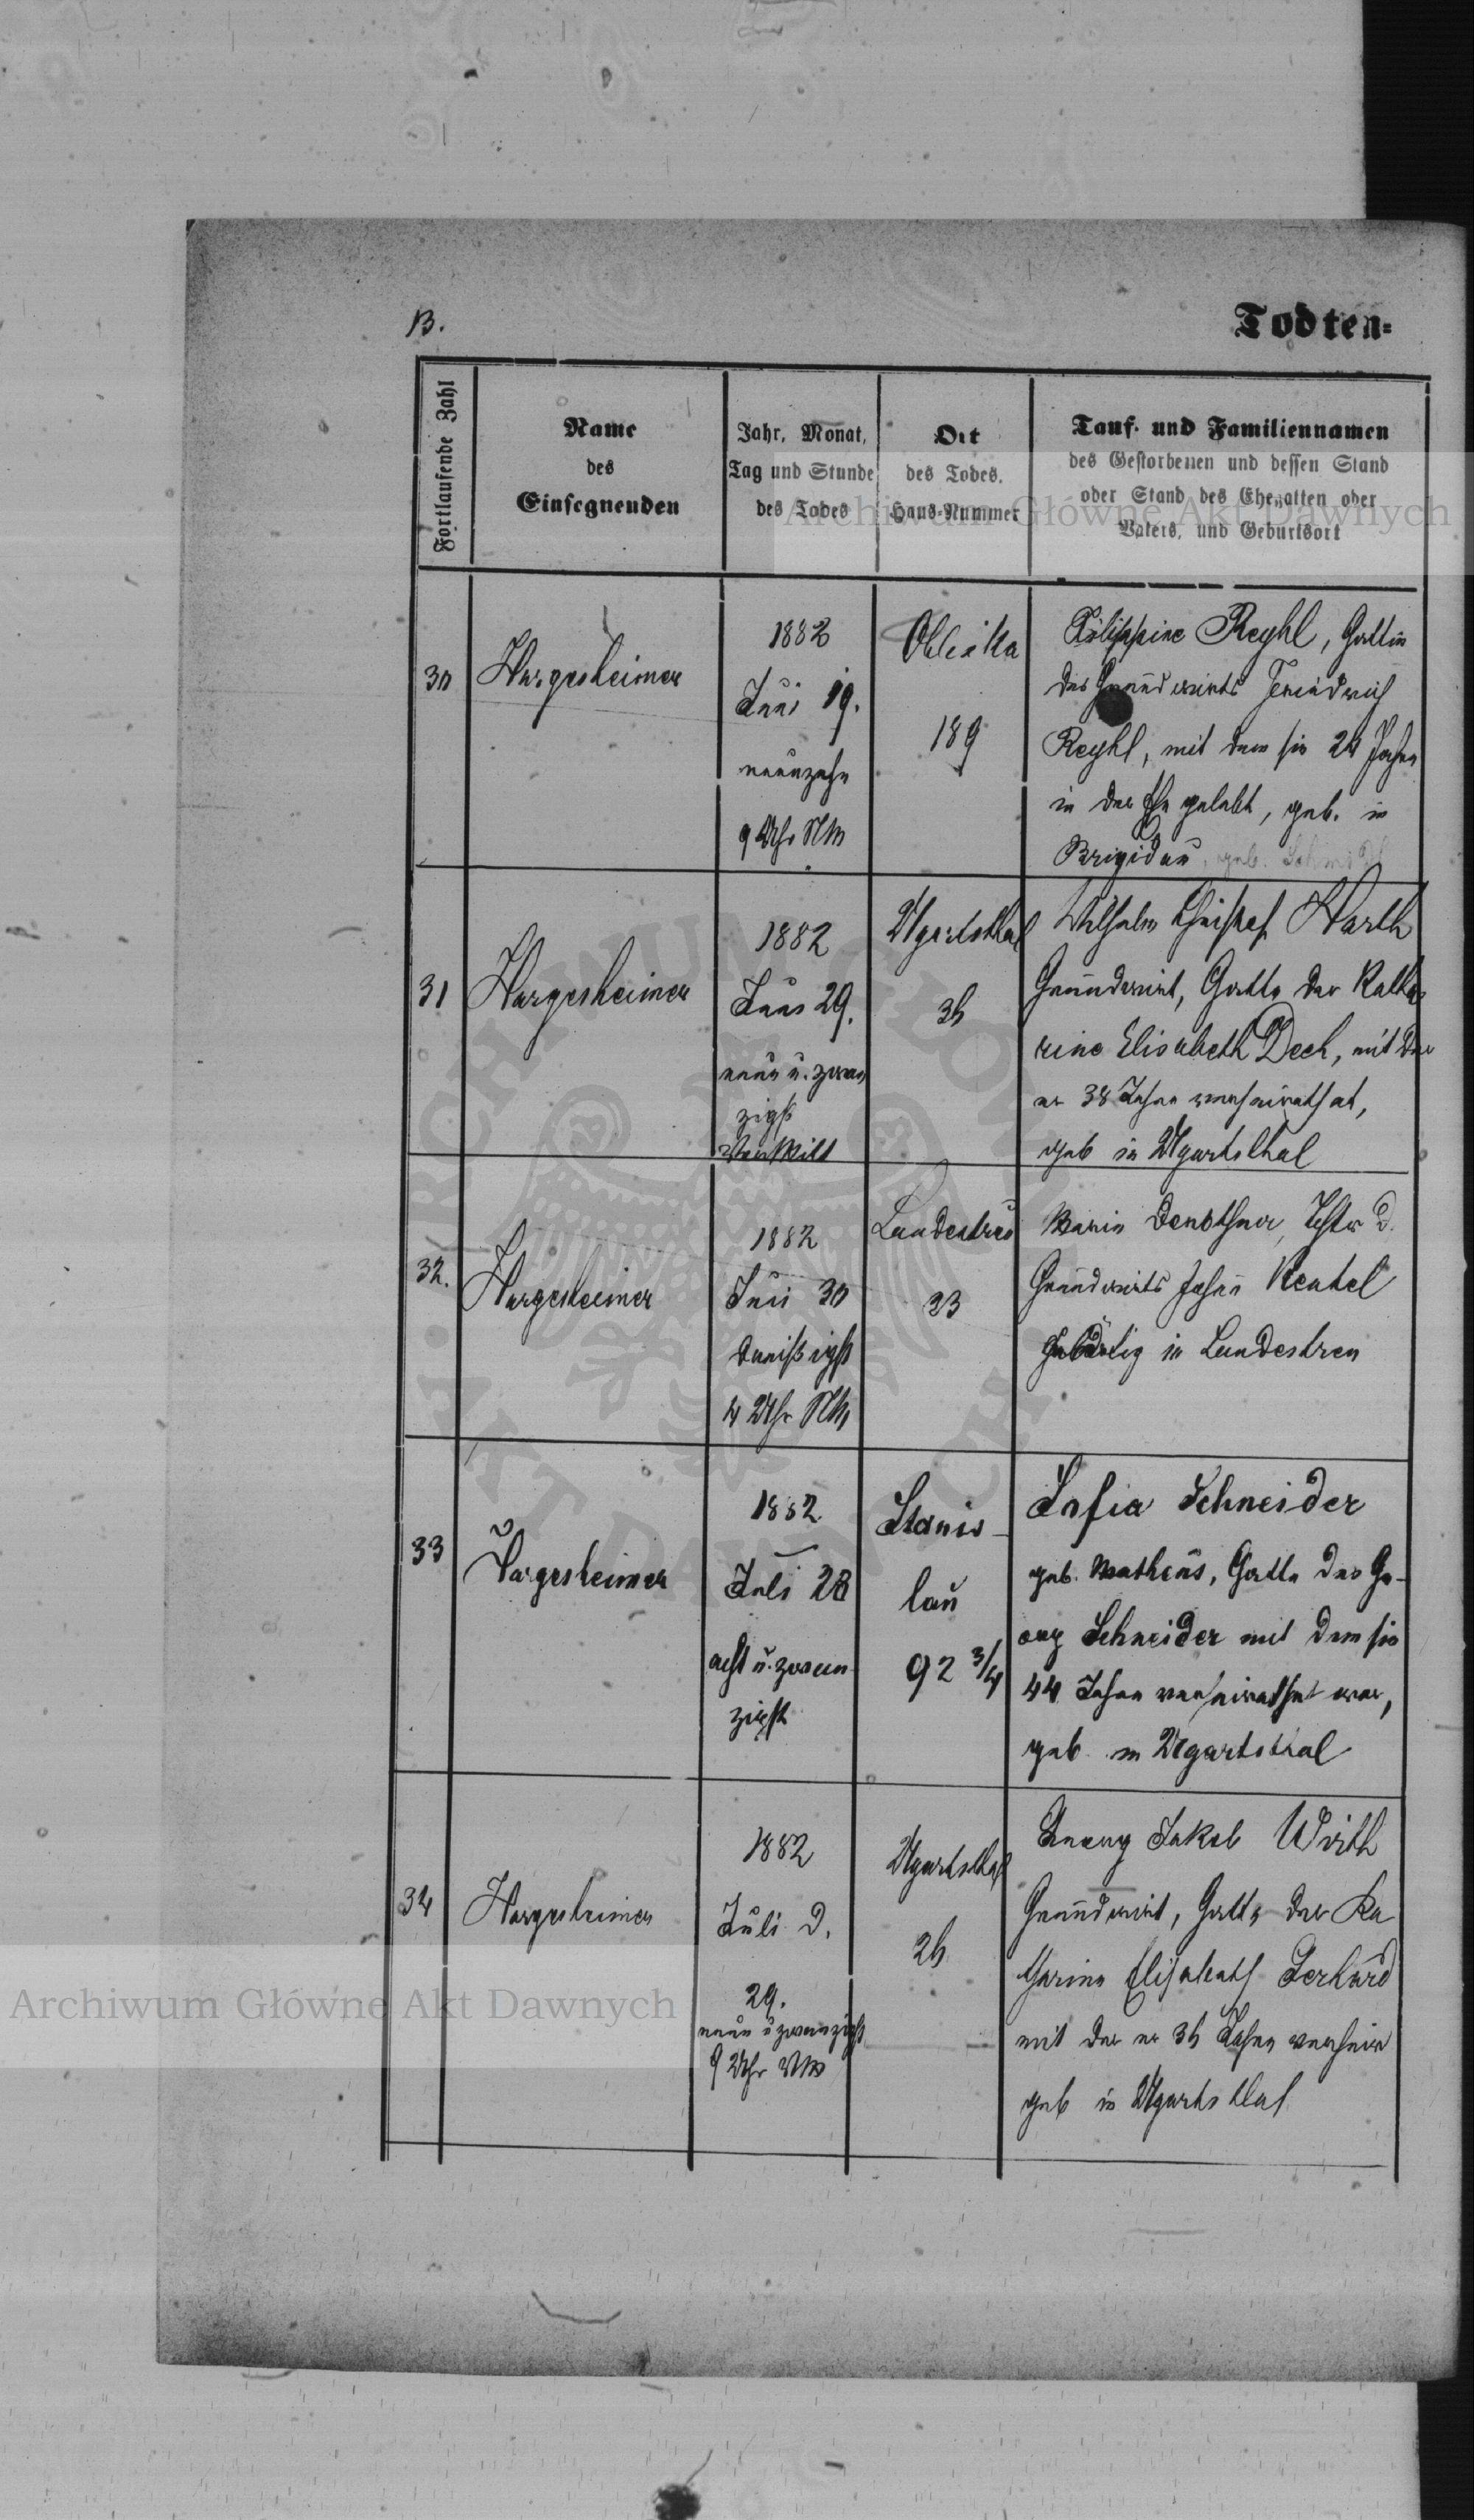 B.
Todten=
Fortlaufende Zahl
Name
des
Einsegnenden
Jahr, Monat,
Tag und Stunde
des Todes
Ort
des Todes.
Haus-Nummer
Tauf- und Familiennamen
des Gestorbenen und dessen Stand
oder Stand des Ehegatten oder
Vaters, und Geburtsort
Archiwum Główne Akt Dawnych
30
Hargesheimer
1882
Juni 19.
neunzehn
9 Uhr NM
189
Filippine Reyhl, Gattin
des Grundwirts Friedrich
Reyhl, mit dem sie 24 Jahre
in der Ehe gelebt, geb. in
Brigidau, geb.
31
Hargesheimer
1882
Juni 29.
neun u. zwan
zigst
Ugartsthal
Wilhelm Christof Harth
Grundwirt, Gatte der Katha
rine Elisabeth Dech, mit der
er 38 Jahre verheirathet,
geb in Ugartsthal
32.
Hargesheimer
1882
Juni 30
dreißigst
4 Uhr NM
Landestreu
23
Maria
Grundwirts Johann
gebürtig in Landestreu
33
Hargesheimer
1882
Juli 28
acht u. zwan
zigst
Stanis-
lau
92 3/4
Sofia Schneider
geb. Matheus, Gatte des Ge-
org Schneider mit dem sie
44 Jahre verheirathet war,
geb. in Ugartsthal
34
Hargesheimer
1882
Juli d.
29.
neun u zwanzigst
9 Uhr VM
Ugartsthal
Georg Jakob Wirth
Grundwirt, Gatte der Ka
tharina Elisabeth Gerhard
mit der er Jahre verheir
geb in Ugartsthal
Archiwum Główne Akt Dawnych
ARCHIWUM GŁÓWNE
AKT DAWNYCH